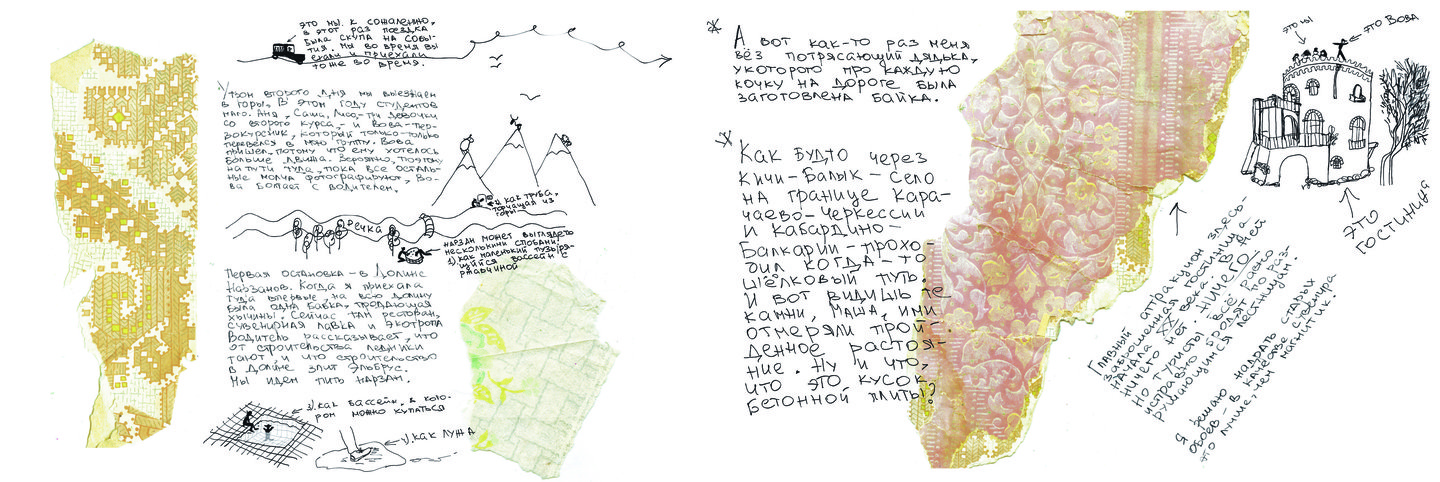 это мы. К сожалению,
в этот раз поездка
была скупа на собы-
тия. Мы во время вы
ехали и приехали
тоже во время.
Утром второго дня мы выезжаем
в горы. В этом году студентов
мало. Аня, Саша, Лиса - три девочки
со второго курса, - и Вова - пер-
вокурсник, который только-только
перевёлся в мою группу. Вова
пришел, потому что ему хотелось
больше движа. Вероятно, поэтому
на пути туда, пока все осталь-
ные молча фотографируют, Во-
ва болтает с водителем.
2) как труба,
торчащая из
горы
речка
нарзан может выглядеть
несколькими способами:
1) как маленький пузыря-
щийся бассейн с
ржавчиной
Первая остановка - в Долине
Нарзанов. Когда я приехала
туда впервые, на всю долину
была одна бабка, продающая
хычины. Сейчас там ресторан,
сувенирная лавка и экотропа
Водитель рассказывает, что
от строительства ледники
тают, и что строительство
в долине злит Эльбрус.
Мы идем пить нарзан.
3) как бассейн, в кото-
ром можно купаться
4) как лужа
Ж
А вот как-то раз меня
вёз потрясающий дядька,
у которого про каждую
кочку на дороге была
заготовлена байка.
Ж
Как будто через
Кичи-Балык - село
на границе Кара-
чаево-Черкессии
и Кабардино-
Балкарии - прохо-
дил когда-то
шёлковый путь.
И вот видишь те
камни, Маша, ими
отмеряли прой-
денное растоя-
ние. Ну и что,
что это кусок
бетонной плиты?
это мы
это Вова
это
гостиница
Главный аттракцион здесь -
заброшенная гостиница
начала XX века. В ней
ничего нет. Ничего.
Но туристы всё равно
исправно бродят по раз-
рушающимся лестницам.
Я решаю надрать старых
обоев - в качестве сувенира
это лучше, чем магнитик.